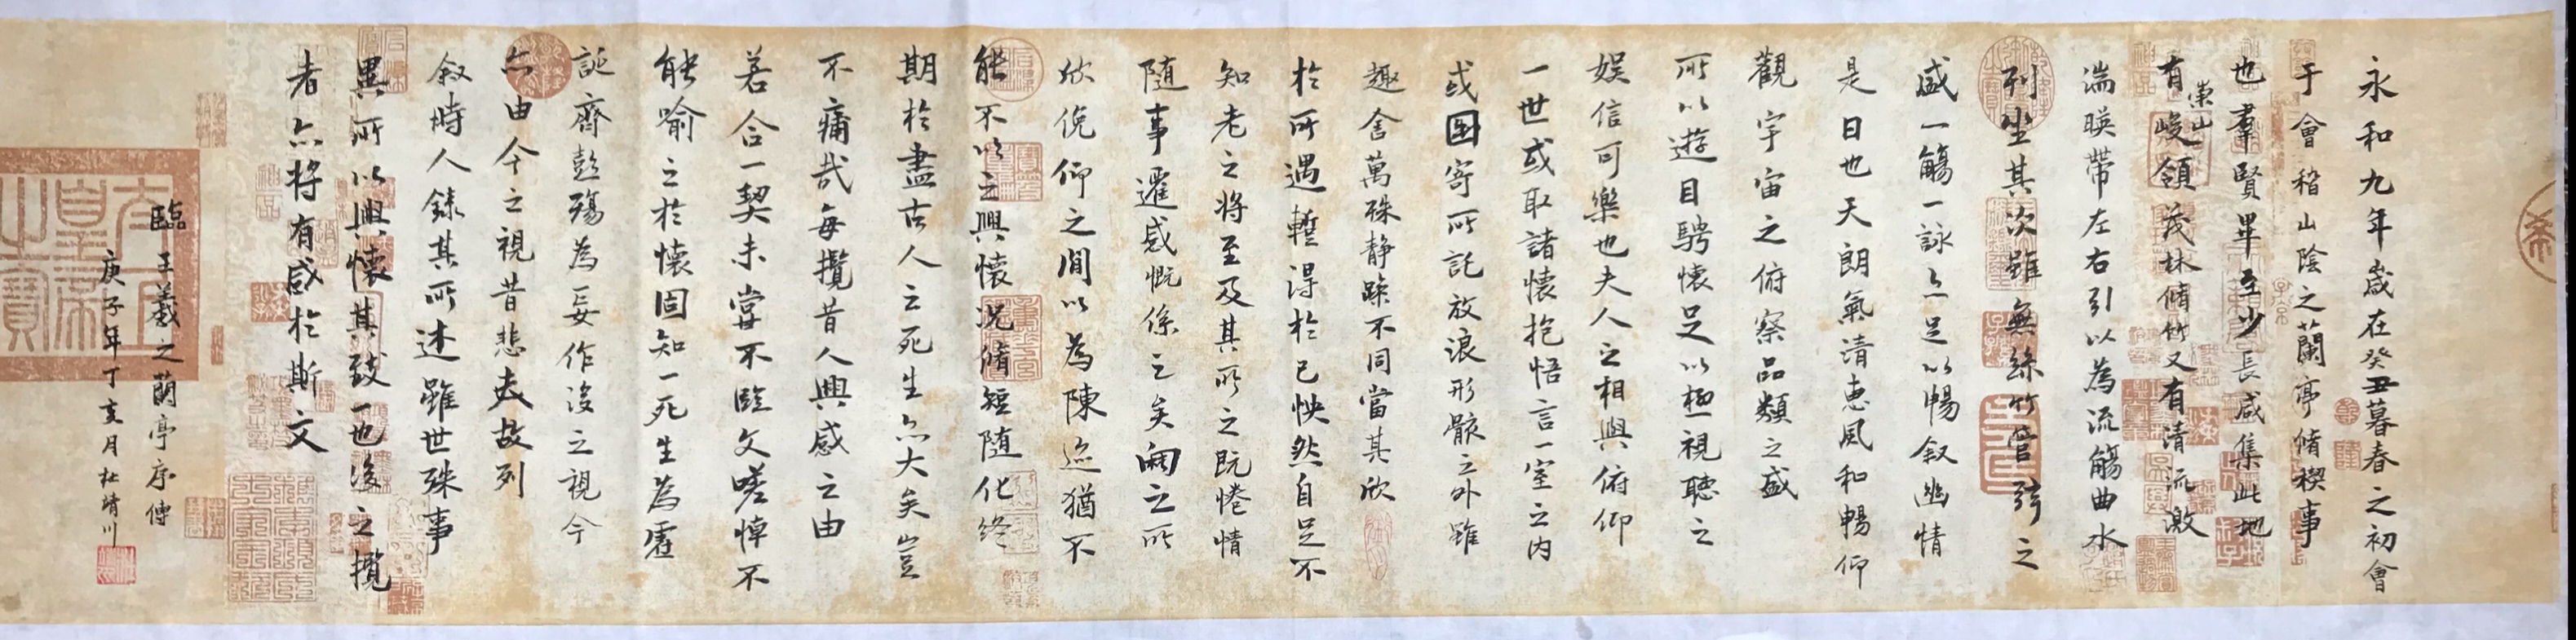 永和九年歲在癸丑暮春之初會
于會稽山陰之蘭亭脩禊事
也羣賢畢至少長咸集此地
有崇山峻領茂林脩竹又有清流激
湍暎帶左右引以為流觴曲水
列坐其次雖無絲竹管弦之
盛一觴一詠亦足以暢叙幽情
是日也天朗氣清惠風和暢仰
觀宇宙之俯察品類之盛
所以遊目騁懷足以極視聽之
娛信可樂也夫人之相與俯仰
一世或取諸懷抱悟言一室之內
或因寄所託放浪形骸之外雖
趣舍萬殊静躁不同當其欣
於所遇蹔得於己怏然自足不
知老之將至及其所之既惓情
隨事遷感慨係之矣向之所
欣俛仰之閒以為陳迹猶不
能不以之興懷況脩短隨化終
期於盡古人云死生亦大矣豈
不痛哉每攬昔人興感之由
若合一契未嘗不臨文嗟悼不
能喻之於懷固知一死生為虛
誕齊彭殤為妄作後之視今
亦由今之視昔悲夫故列
叙時人錄其所述雖世殊事
異所以興懷其致一也後之攬
者亦將有感於斯文
臨王羲之蘭亭序傳
庚子年丁亥月杜靖川